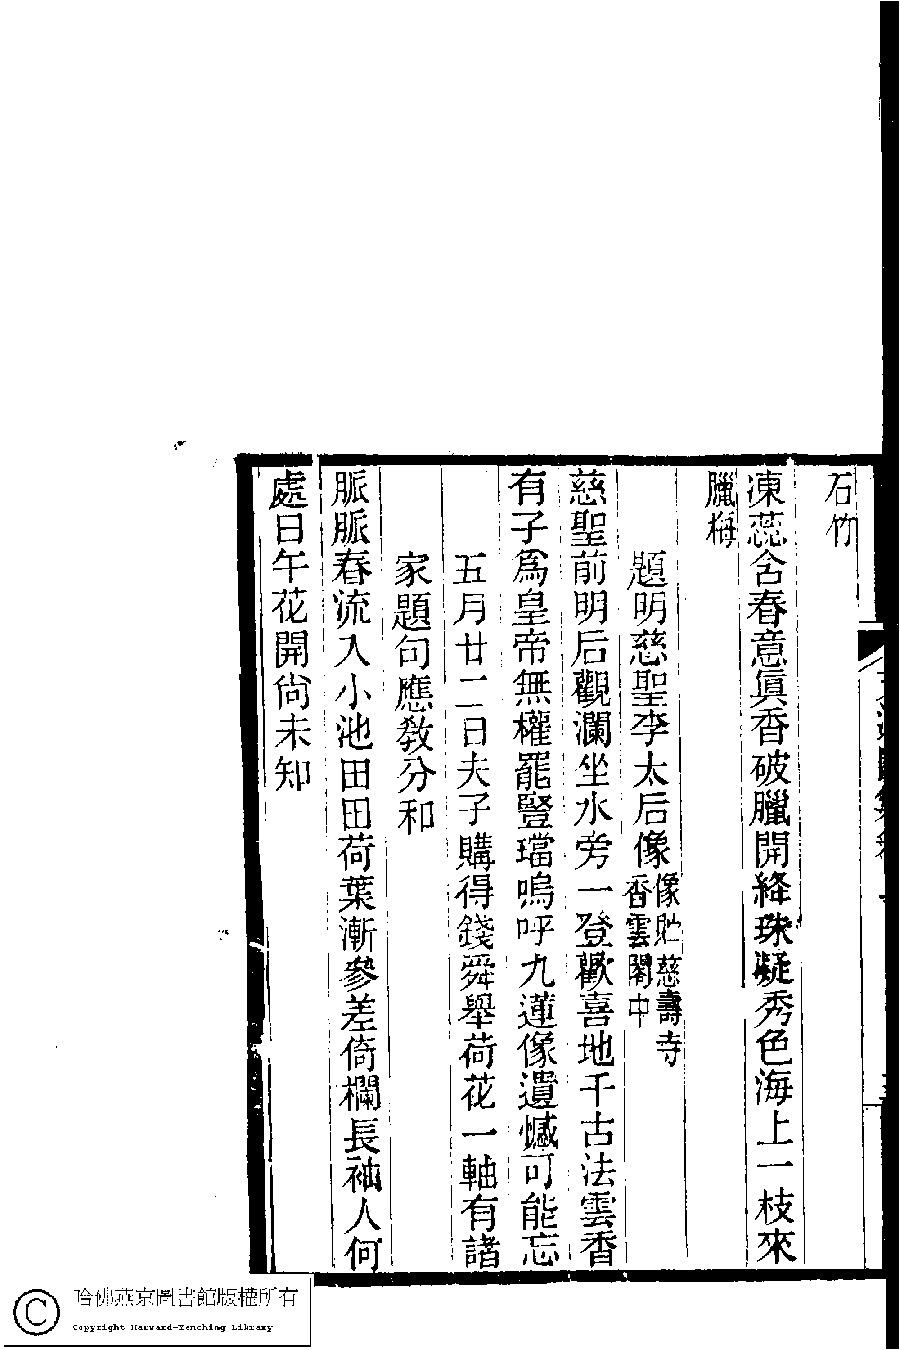 石竹
凍蕊含春意眞香破臘開絳珠疑秀色海上一枝來
臘梅
題明慈聖李太后像像貯慈壽寺香雲閣中
慈聖前明后觀瀾坐水旁一登歡喜地千古法雲香
有子爲皇帝無權罷豎璫嗚呼九蓮像遺憾可能忘
五月廿二日夫子購得錢舜舉荷花一軸有諸
家題句應敎分和
脈脈春流入小池田田荷葉漸參差倚欄長袖人何
處日午花開尙未知
哈佛燕京圖書館版權所有
Copyright Harvard-Yenching Library